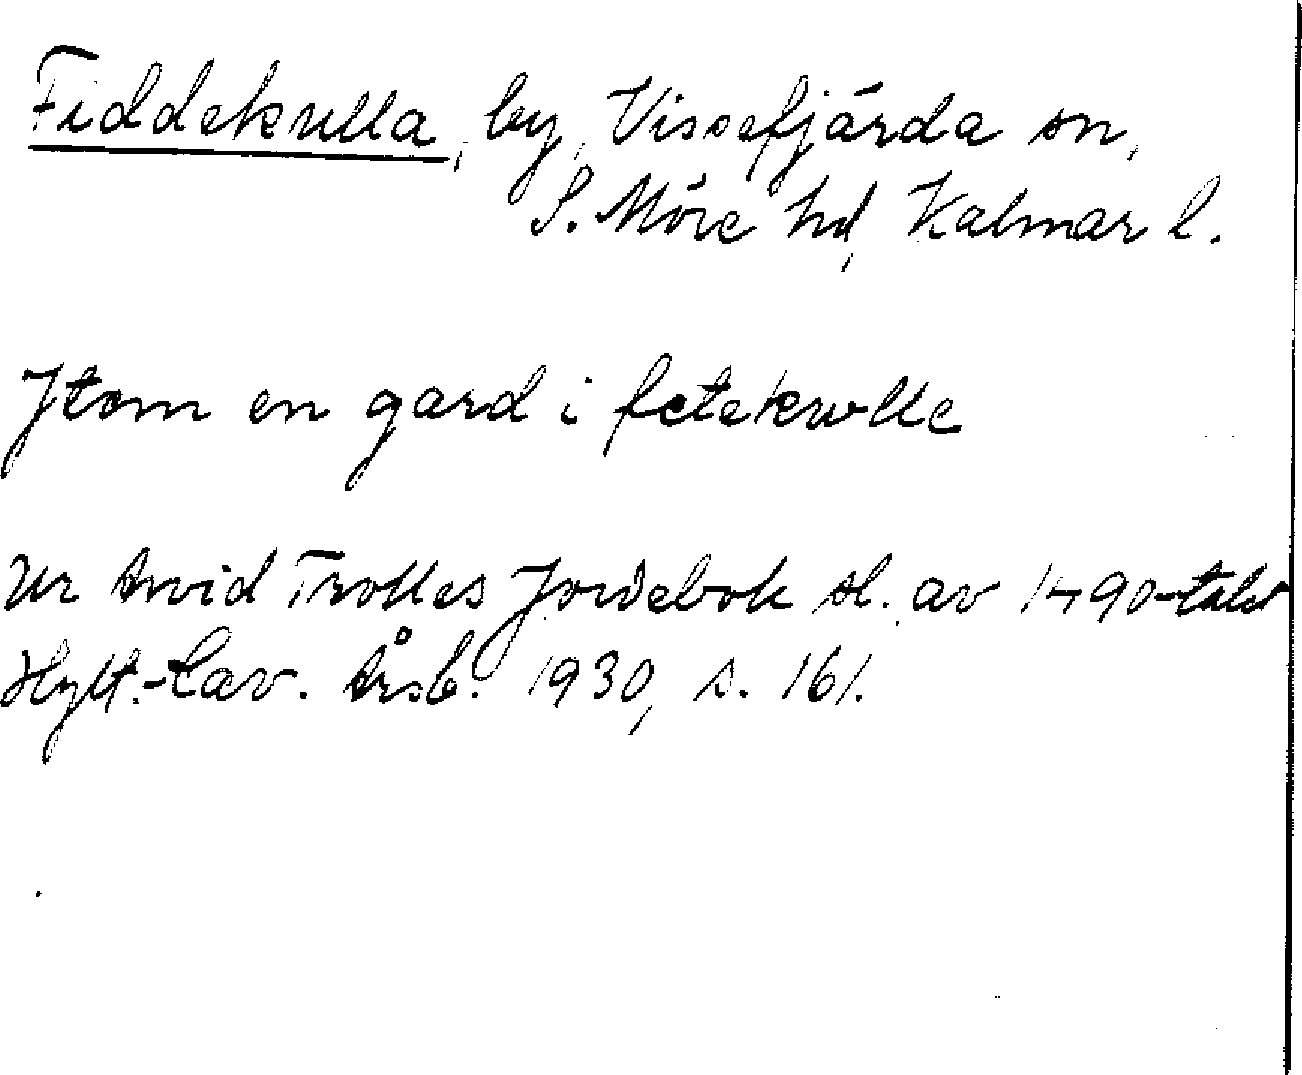 Fiddekulla, by, Vissefjärda sn,
S. Möre hd, Kalmar l.
Jtem en gard i fetekulle
Ur Arvid Trolles Jordebok sl. av 1490-talet
Hylt.-Cav. Årsb. 1930, s. 161.